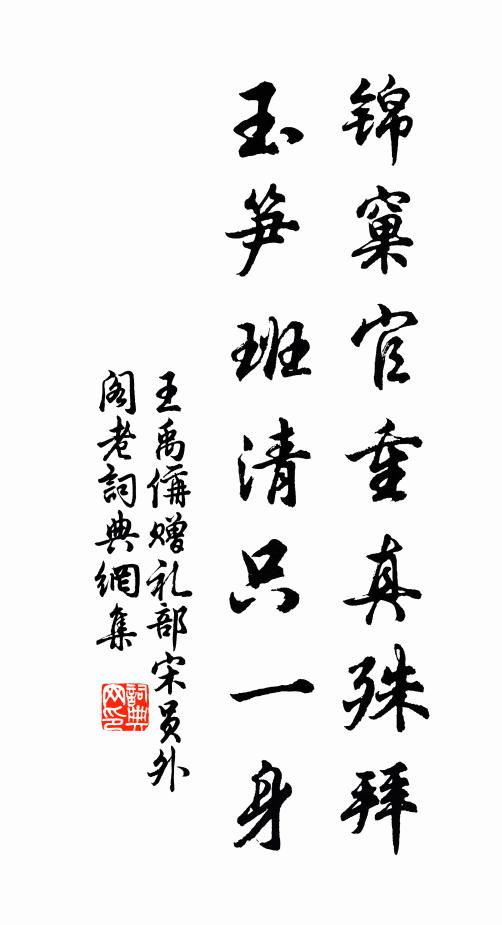 锦窠官重真殊拜
玉笋班清只一身
王禹偁赠礼部宋员外
阁老詞典網集
詞典网印